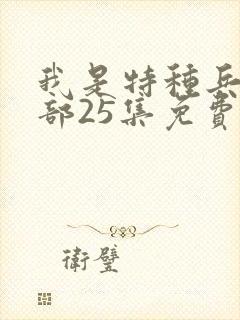 我是特種兵
部25集免費
衛璧